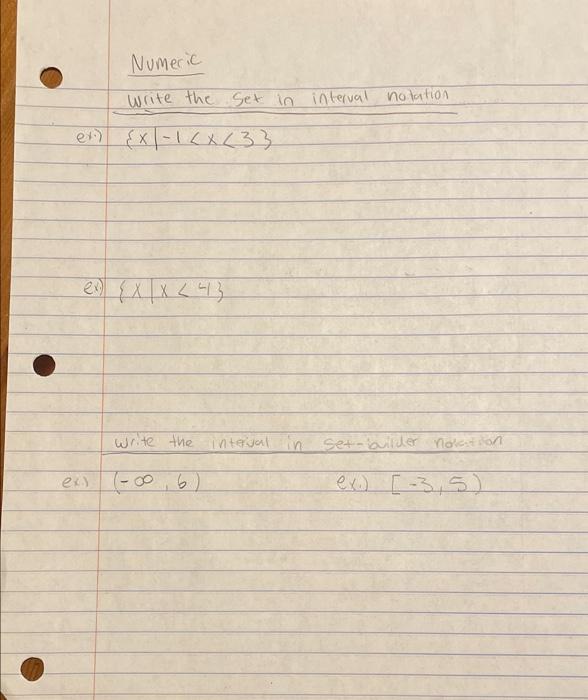 Numeric
Write the set in interval notation
ex:) {x|-1<x<3}
ex) {x|x<4}
write the interval in set-builder notation
ex.) (-∞,6) ex.) [-3,5)